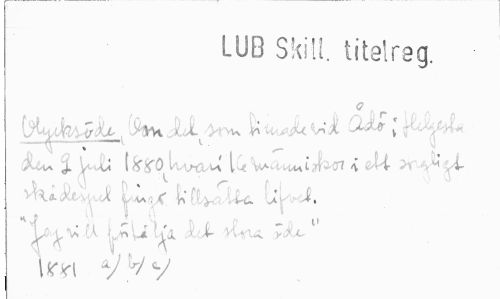 LUB Skill. titelreg.
Olycksöde, Om det, som timade vid Ådö i Helgesta
den 9 juli 1880, hvari 16 människor i ett sorgligt
skådespel fingo tillsätta lifvet.
"Jag vill förtälja det stora öde"
1881 a/ b/ c/